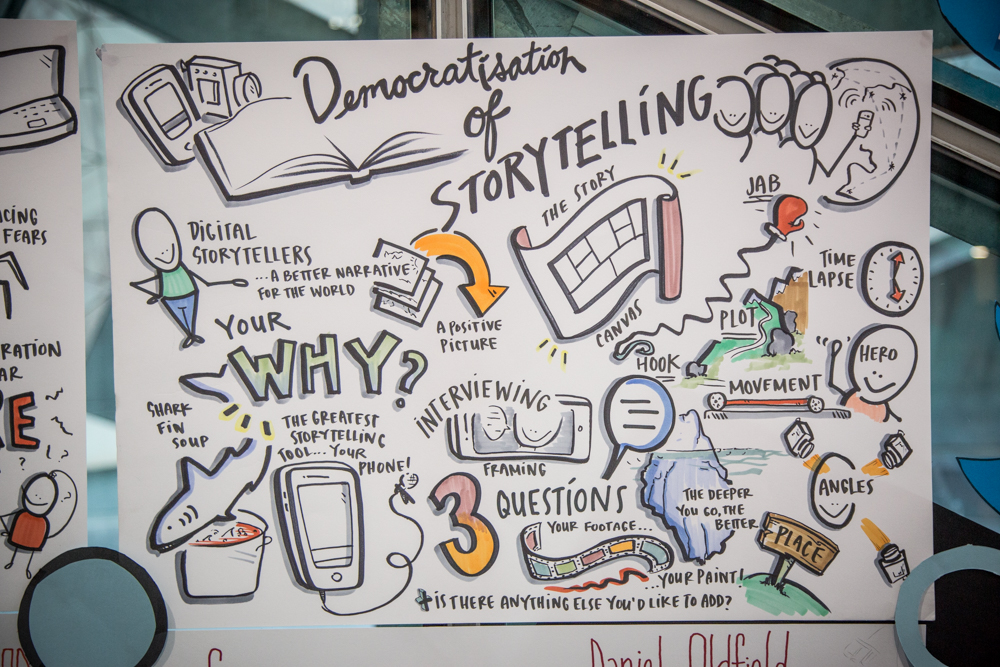 Democratisation
of
STORYTELLING
DIGITAL
STORYTELLERS
...A BETTER NARRATIVE
FOR THE WORLD
A POSITIVE
PICTURE
THE STORY
CANVAS
JAB
HOOK
TIME
LAPSE
PLOT
"P"
HERO
MOVEMENT
YOUR
WHY?
SHARK
FIN
SOUP
THE GREATEST
STORYTELLING
TOOL... YOUR
PHONE!
INTERVIEWING
FRAMING
3 QUESTIONS
THE DEEPER
YOU GO, THE
BETTER
ANGLES
PLACE
YOUR FOOTAGE...
...YOUR PAINT!
+ IS THERE ANYTHING ELSE YOU'D LIKE TO ADD?
FEARS
Daniel Oldfield